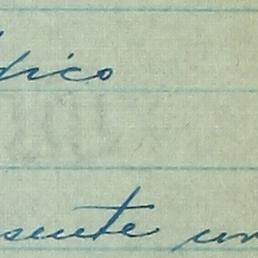 dico
sente un